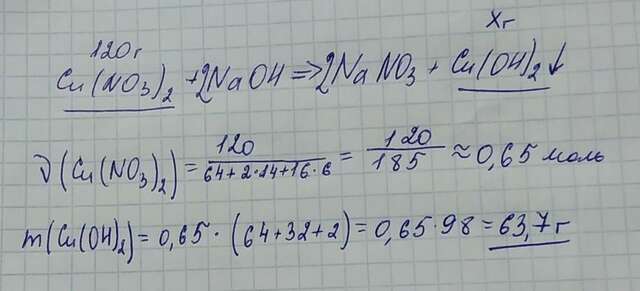 120г Xг
Cu(NO₃)₂ + 2NaOH => 2NaNO₃ + Cu(OH)₂↓
ν(Cu(NO₃)₂) = 120/(64+2·14+16·6) = 120/185 ≈ 0,65 моль
m(Cu(OH)₂) = 0,65 · (64+32+2) = 0,65·98 = 63,7 г